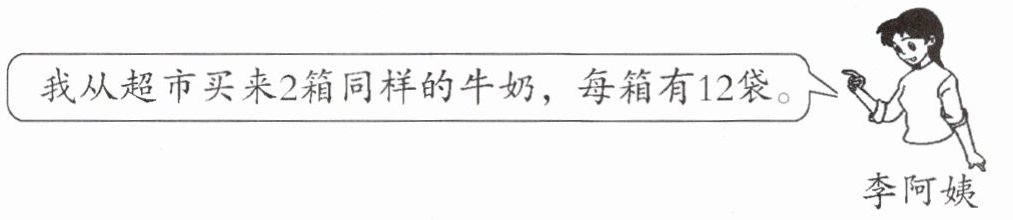 我从超市买来2箱同样的牛奶，每箱有12袋。
李阿姨